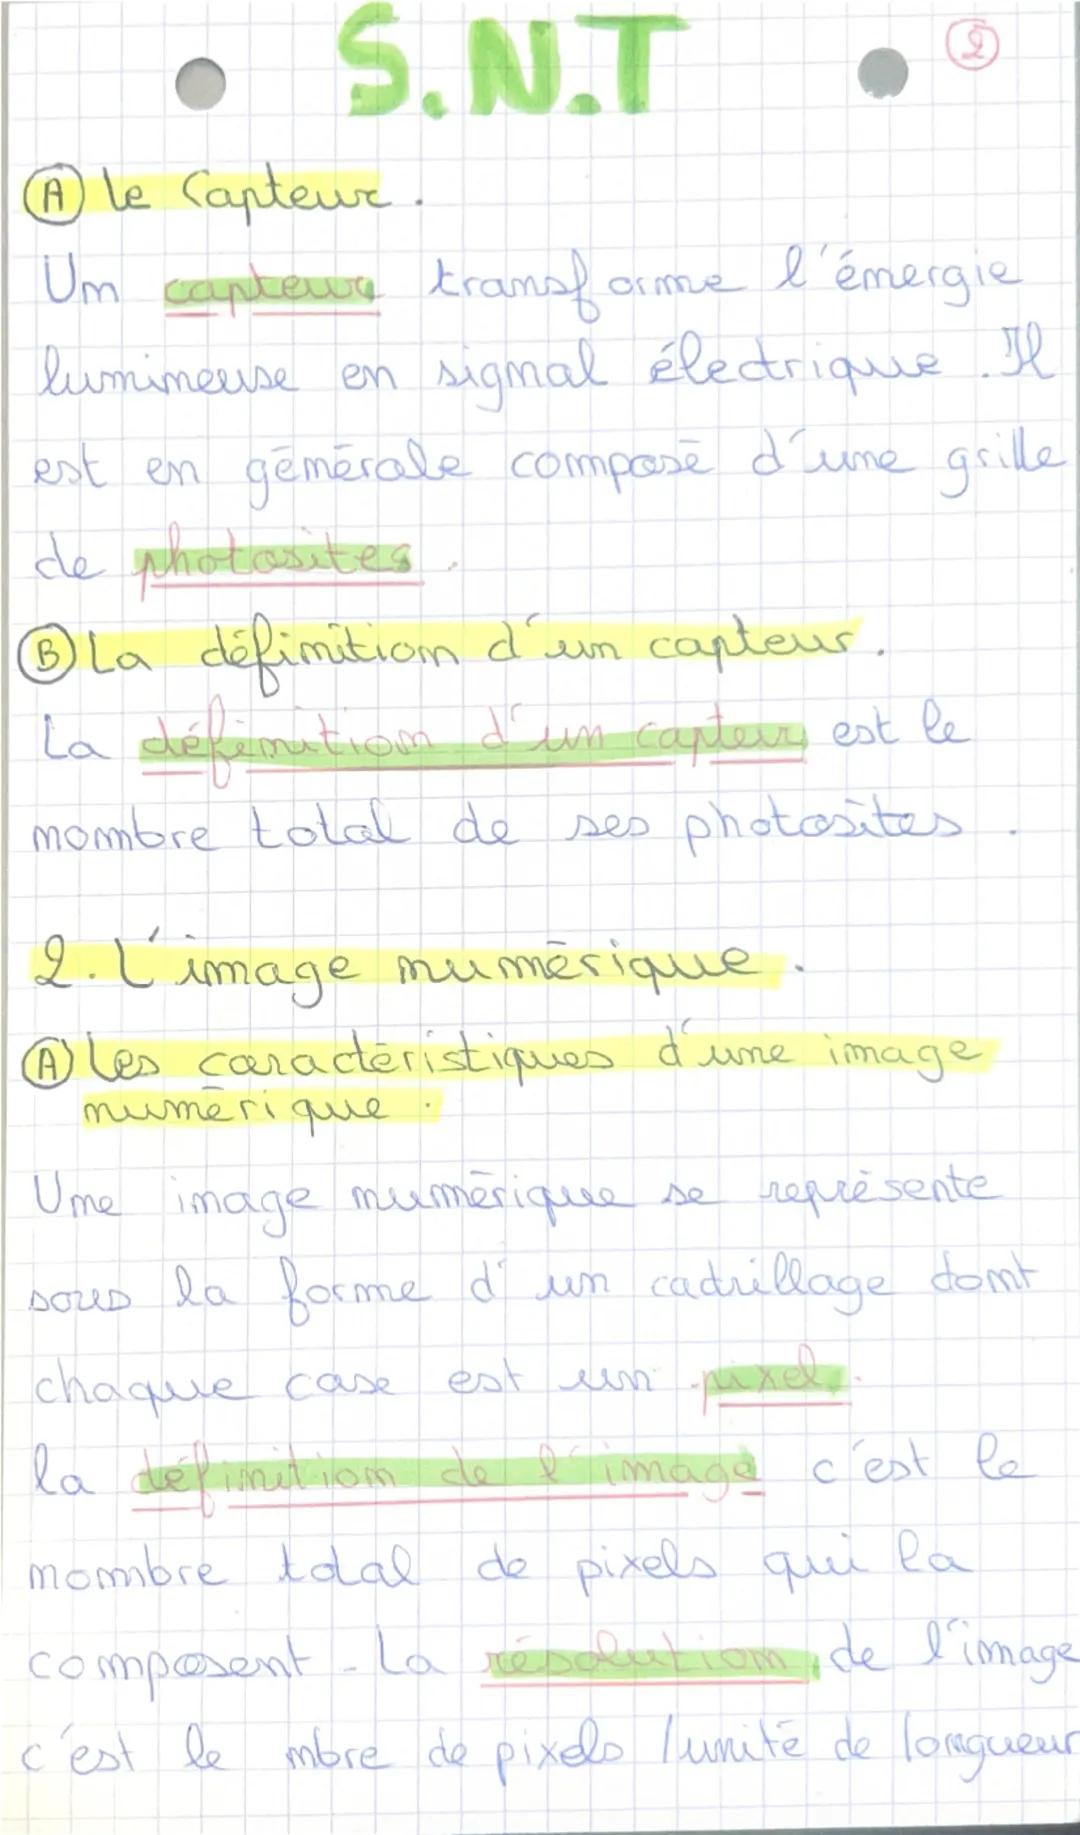 S.N.T
2
A le Capteur.
Un capteur transforme l'énergie
lumineuse en signal électrique. Il
est en générale composé d'une grille
de photosites.
B La définition d'un capteur.
La définition d'un capteur est le
nombre total de ses photosites.
2. L'image numérique.
A Les caractéristiques d'une image
numérique.
Une image numérique se représente
sous la forme d'un cadrillage dont
chaque case est un pixel.
la définition de l'image c'est le
nombre total de pixels qui la
composent. La résolution de l'image
c'est le nbre de pixels /unité de longueur